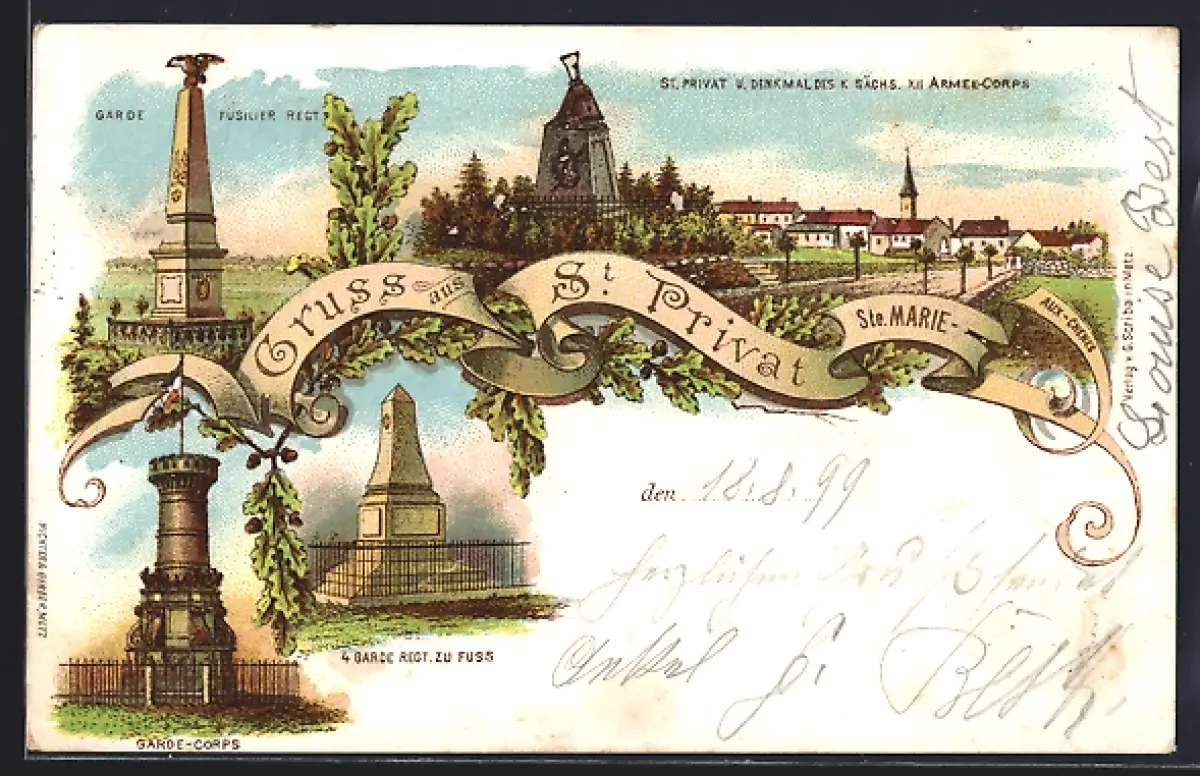 GARDE FÜSILIER REGT.
ST. PRIVAT U. DENKMAL DES K. SÄCHS. XII ARMEE-CORPS
Gruss aus St. Privat
Ste. MARIE-
AUX-CHÊNES
Verlag v. G. Scriba in Metz
Louise Best
den 18.8.99
Herzlichen
Onkel
4 GARDE REGT. ZU FUSS
GARDE-CORPS